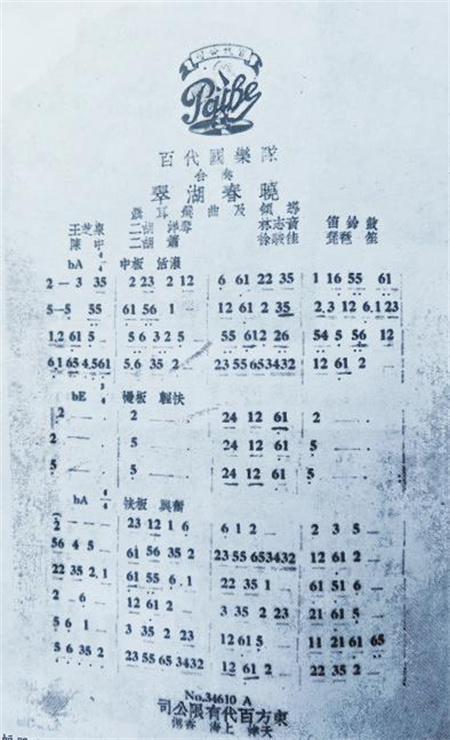 百代公司
Pathe
百代國樂隊
合奏
翠湖春曉
聶耳編曲及領導
王芝泉 二胡 洋琴 林志音 笛 鈴鼓
陳中 二胡 簫 徐駿佳 琵琶 笙
bA 4/4 中板 活潑
2 — 3 35 2 23 2 12 6 61 22 35 1 16 55 61
5 — 5 55 61 56 1 — 12 61 2 35 2 3 12 6.1 23
1.2 61 5 — 5 6 3 2 5 55 612 26 54 5 56 12
6.1 65 4.561 5.6 35 2 — 23 55 653432 12 61 2 —
bE 慢板 輕快
2 — 2 — 24 12 61 2 —
2 — 5 — 24 12 61 5 —
5 — 5 — 24 12 61 5 —
bA 快板 興奮
2 — 23 12 1 6 6 1 2 — 2 3 5 —
56 4 5 — 61 56 35 2 23 55 653432 12 61 2 —
22 35 2.1 61 55 6.1 22 35 1 — 61 51 6 —
2 — 6 — 12 61 2 — 3 35 2 23 21 61 5 —
5 6 1 — 3 35 2 23 12 61 5 — 11 21 61 65
5 6 35 2 23 55 65 3432 12 61 2 — 22 35 2 —
No.34610 A
東方百代有限公司
天津 上海 香港